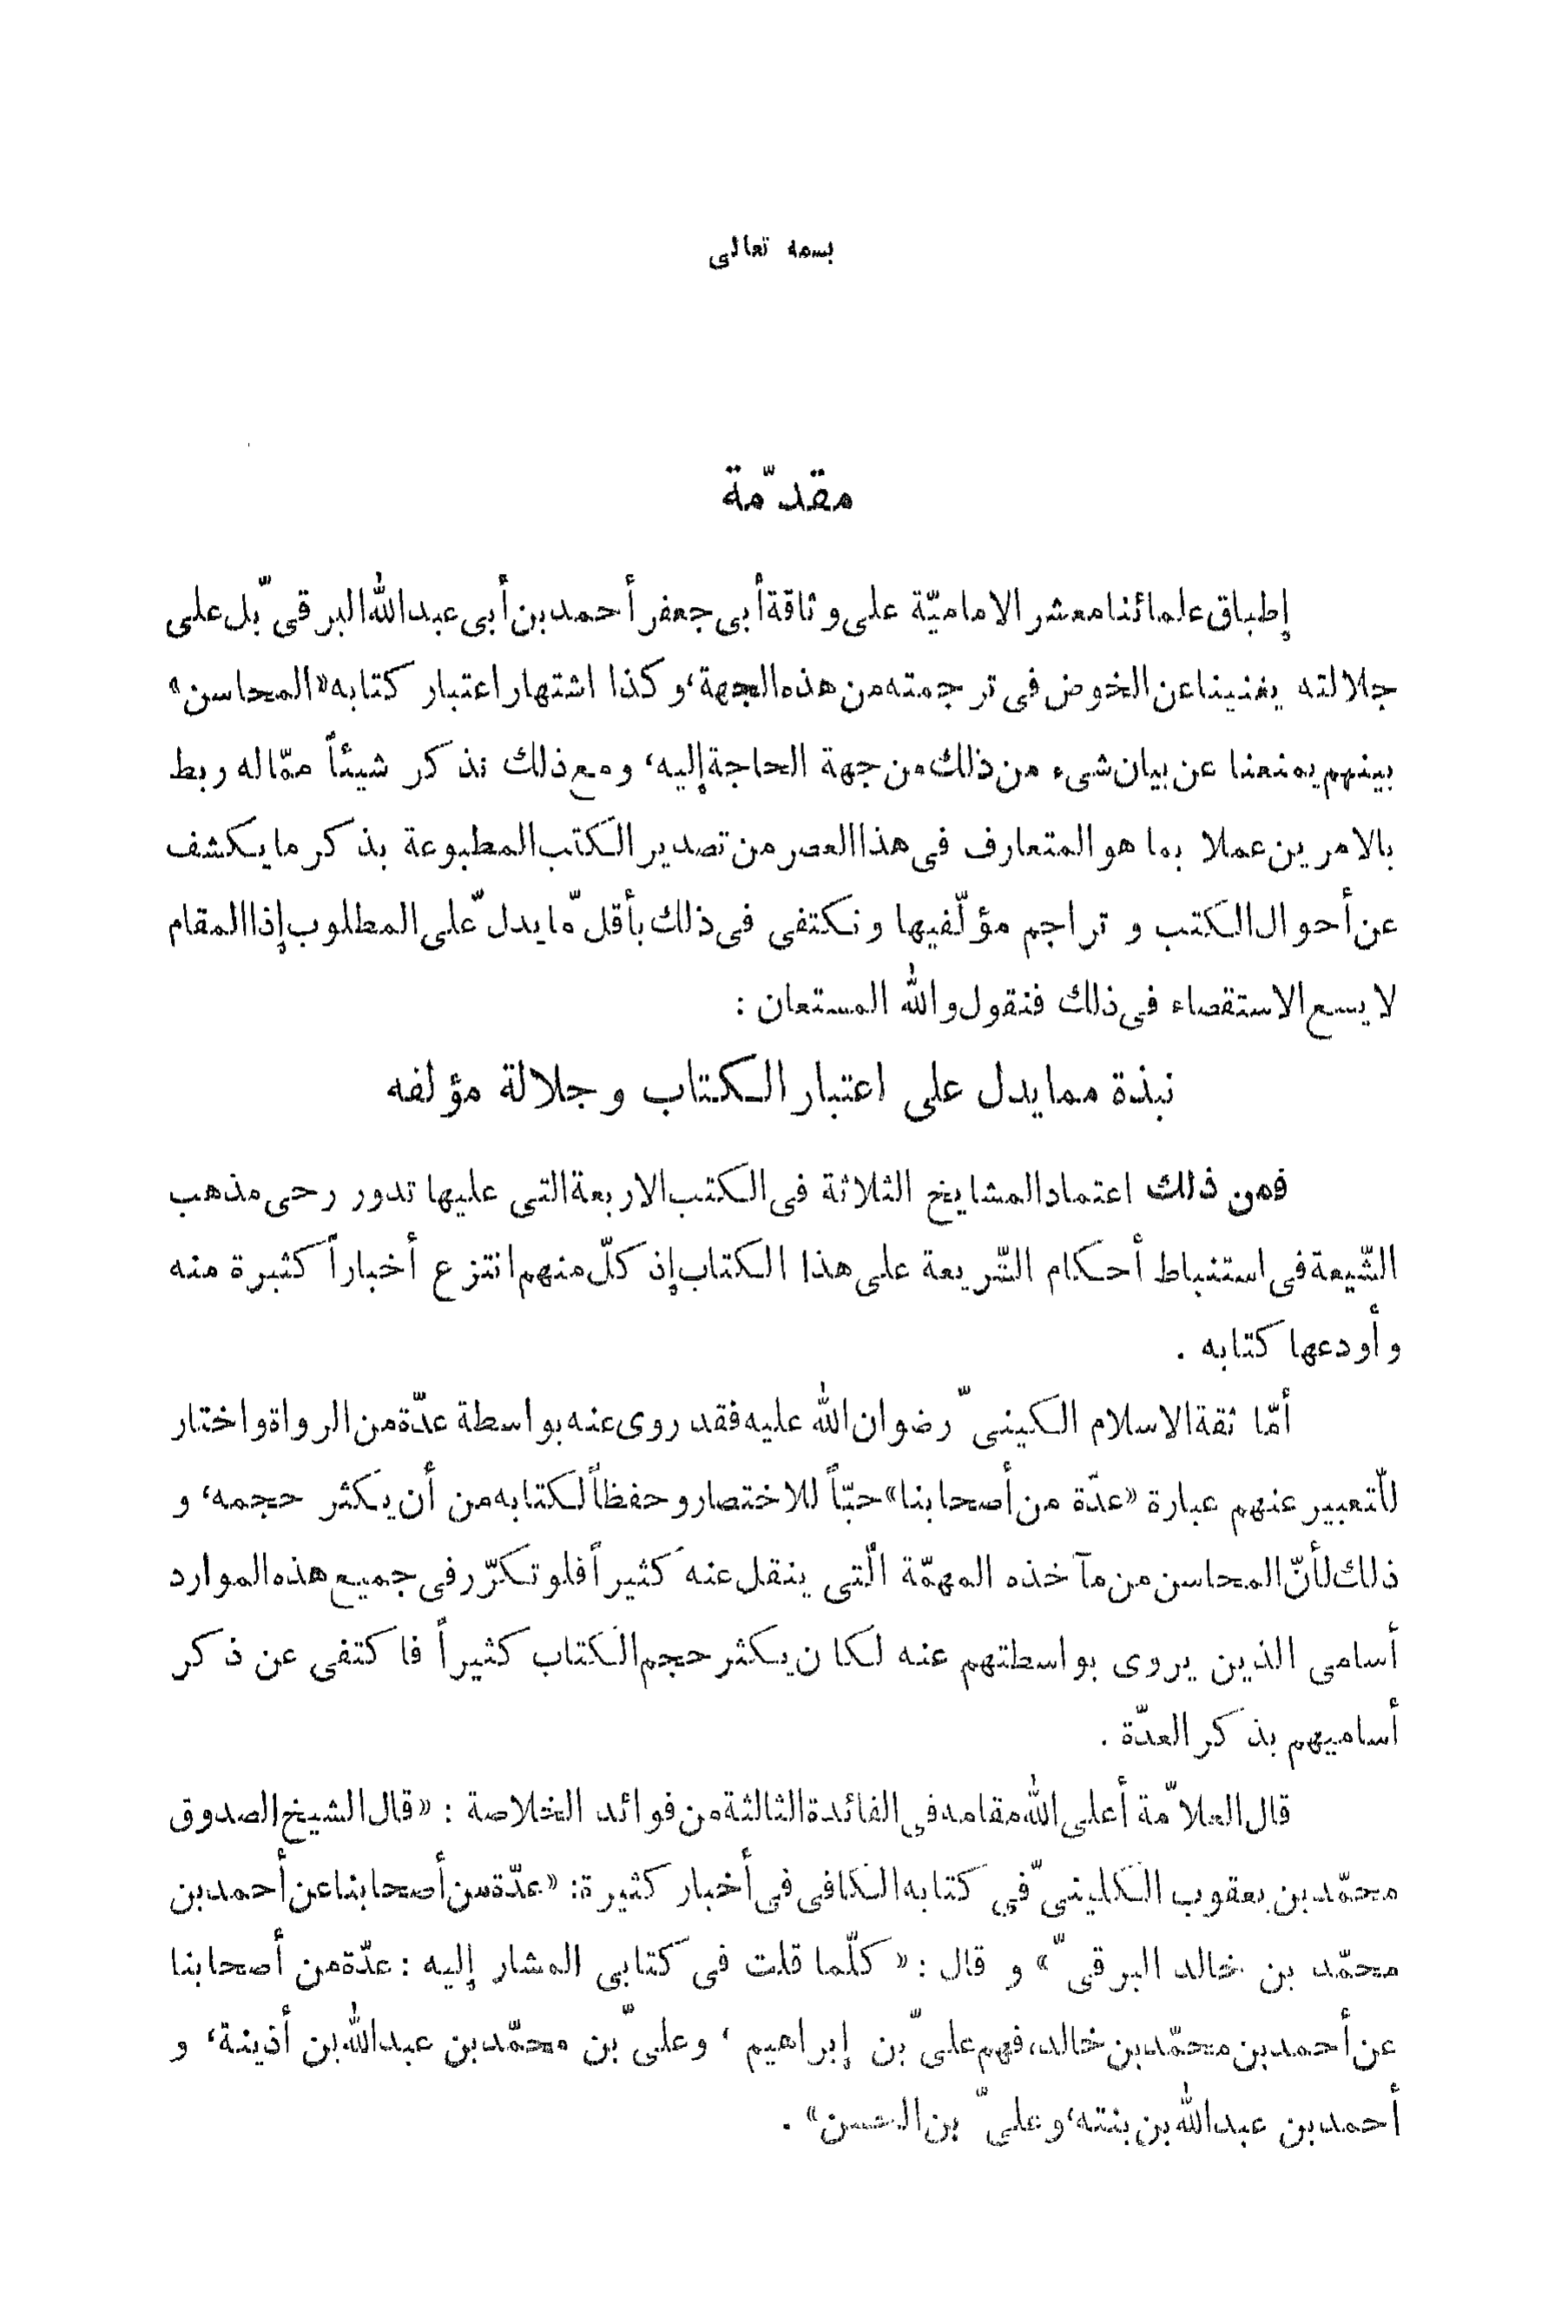 بسمه تعالى
مقدّمة
إطباق علمائنا معشر الامامیّة علی و ثاقة أبی جعفر أحمد بن أبی عبدالله البرقیّ بل علی
جلالته يغنينا عن الخوض فی ترجمته من هذه الجهة، و كذا اشتهار اعتبار كتابه «المحاسن»
بينهم يمنعنا عن بيان شیء من ذلك من جهة الحاجة إليه، و مع ذلك نذكر شيئاً ممّا له ربط
بالامرين عملا بما هو المتعارف فی هذا العصر من تصدير الكتب المطبوعة بذكر ما يكشف
عن أحوال الكتب و تراجم مؤلّفيها و نكتفی فی ذلك بأقلّ ما يدلّ علی المطلوب إذا المقام
لا يسع الاستقصاء فی ذلك فنقول و الله المستعان :
نبذة مما يدل علی اعتبار الكتاب و جلالة مؤلفه
فمن ذلك اعتماد المشايخ الثلاثة فی الكتب الاربعة التی عليها تدور رحی مذهب
الشّيعة فی استنباط أحكام الشّريعة علی هذا الكتاب إذ كلّ منهم انتزع أخباراً كثيرة منه
و أودعها كتابه .
أمّا ثقة الاسلام الكينیّ رضوان الله عليه فقد روی عنه بواسطة عدّة من الرواة و اختار
للّتعبير عنهم عبارة «عدّة من أصحابنا» حبّاً للاختصار و حفظاً لكتابه من أن يكثر حجمه، و
ذلك لأنّ المحاسن من مآخذه المهمّة الّتی ينقل عنه كثيراً فلو تكرّر فی جميع هذه الموارد
أسامی الذين يروی بواسطتهم عنه لكان يكثر حجم الكتاب كثيراً فاكتفی عن ذكر
أساميهم بذكر العدّة .
قال العلاّمة أعلی الله مقامه فی الفائدة الثالثة من فوائد الخلاصة : «قال الشيخ الصدوق
محمّد بن يعقوب الكلينیّ فی كتابه الكافی فی أخبار كثيرة: «عدّة من أصحابنا عن أحمد بن
محمّد بن خالد البرقیّ» و قال : « كلّما قلت فی كتابی المشار إليه : عدّة من أصحابنا
عن أحمد بن محمّد بن خالد، فهم علیّ بن إبراهيم ، و علیّ بن محمّد بن عبدالله بن أذينة، و
أحمد بن عبدالله بن بنته، و علیّ بن الحسن» .